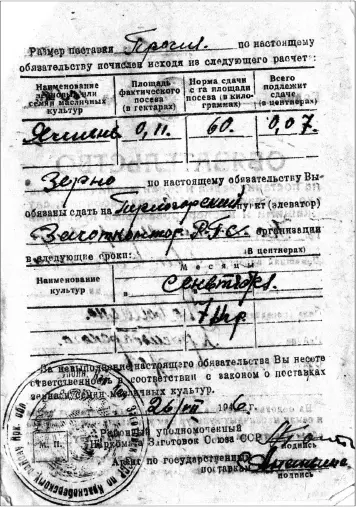 Размер поставки по настоящему
обязательству исчислен исходя из следующего расчета:
Наименование зерновых или семян масличных культур
Площадь фактического посева (в гектарах)
Норма сдачи с га площади посева (в килограммах)
Всего подлежит сдаче (в центнерах)
Ячмень 0,11. 60. 0,07.
Зерно по настоящему обязательству Вы
обязаны сдать на пункт (элеватор)
организации
в следующие сроки: (в центнерах)
Наименование культур
Месяцы
в сентябре
7 кгр.
За невыполнение настоящего обязательства Вы несете
ответственность в соответствии с законом о поставках
зерна и семян масличных культур.
26/VII 1946 г.
М. П.
Районный уполномоченный
Наркомата Заготовок Союза ССР
подпись
Агент по государственным
поставкам
подпись